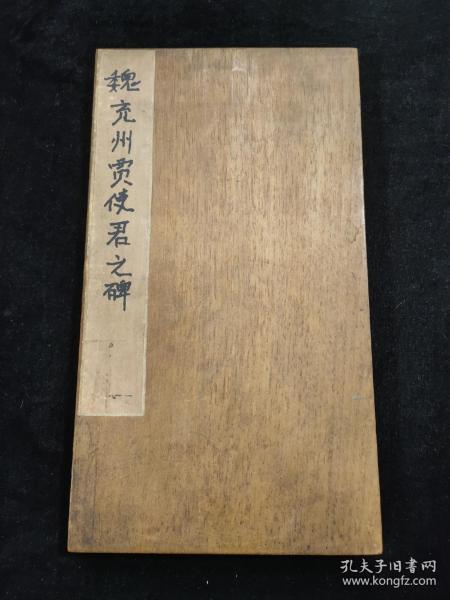 魏兖州贾使君之碑
孔夫子旧书网
www.kongfz.com